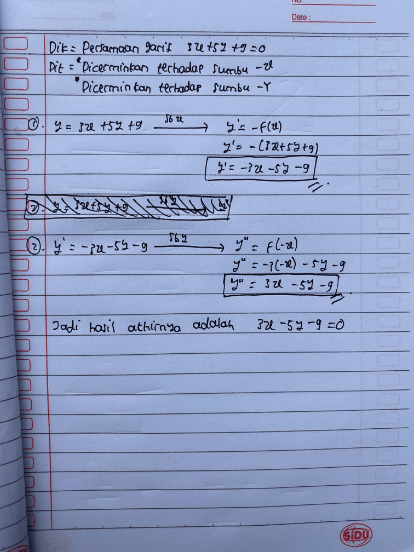 No:
Date :
Dik = Persamaan garis 3x + 5y + 9 = 0
Dit = * Dicerminkan terhadap sumbu -x
* Dicerminkan terhadap sumbu -Y
①. y = 3x + 5y + 9 sb x → y' = -f(x)
y' = -(3x+5y+9)
y' = -3x - 5y - 9
②. y' = -3x - 5y - 9 sb y → y" = f(-x)
y" = -3(-x) - 5y - 9
y" = 3x - 5y - 9
Jadi hasil akhirnya adalah 3x - 5y - 9 = 0
SiDU